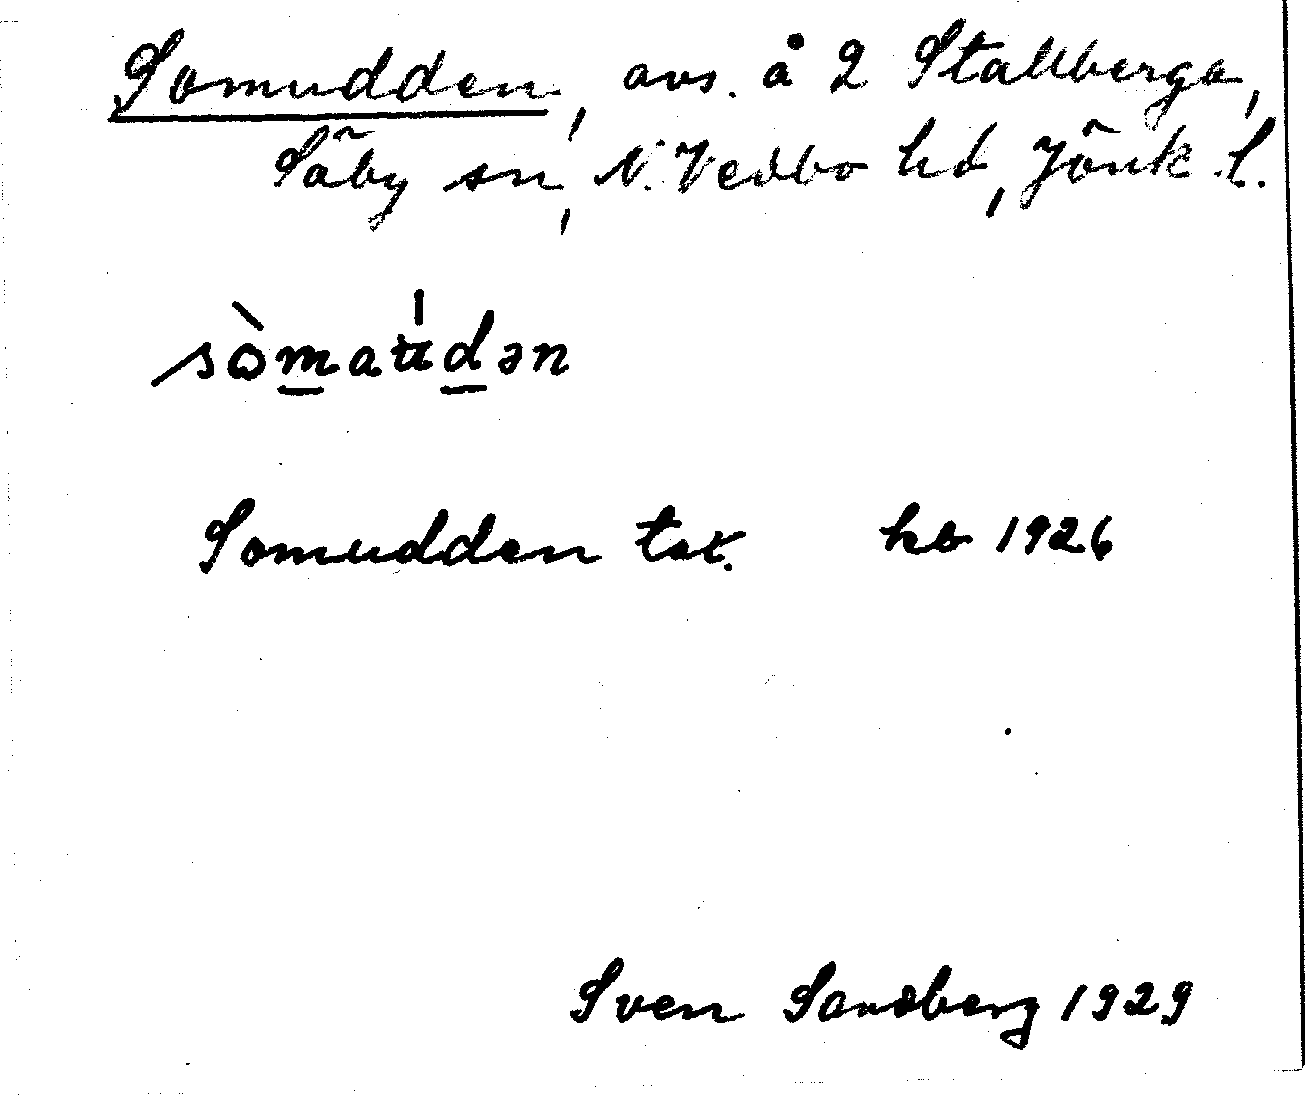 Somudden, avs. å 2 Stallberga,
Säby sn, N. Vedbo hd, Jönk. l.
Somudden tax. hb 1926
Sven Sandberg 1929